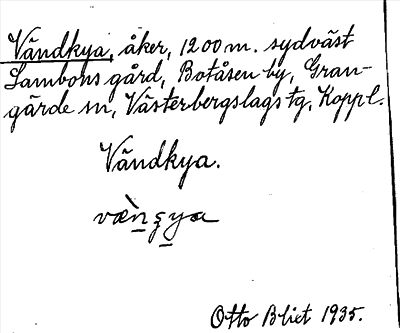 Vändkya, åker, 1200 m. sydväst
Lambons gård, Botåsen by, Gran-
gärde sn, Västerbergslags tg, Koppl.
Vändkya.
Otto Blixt 1935.